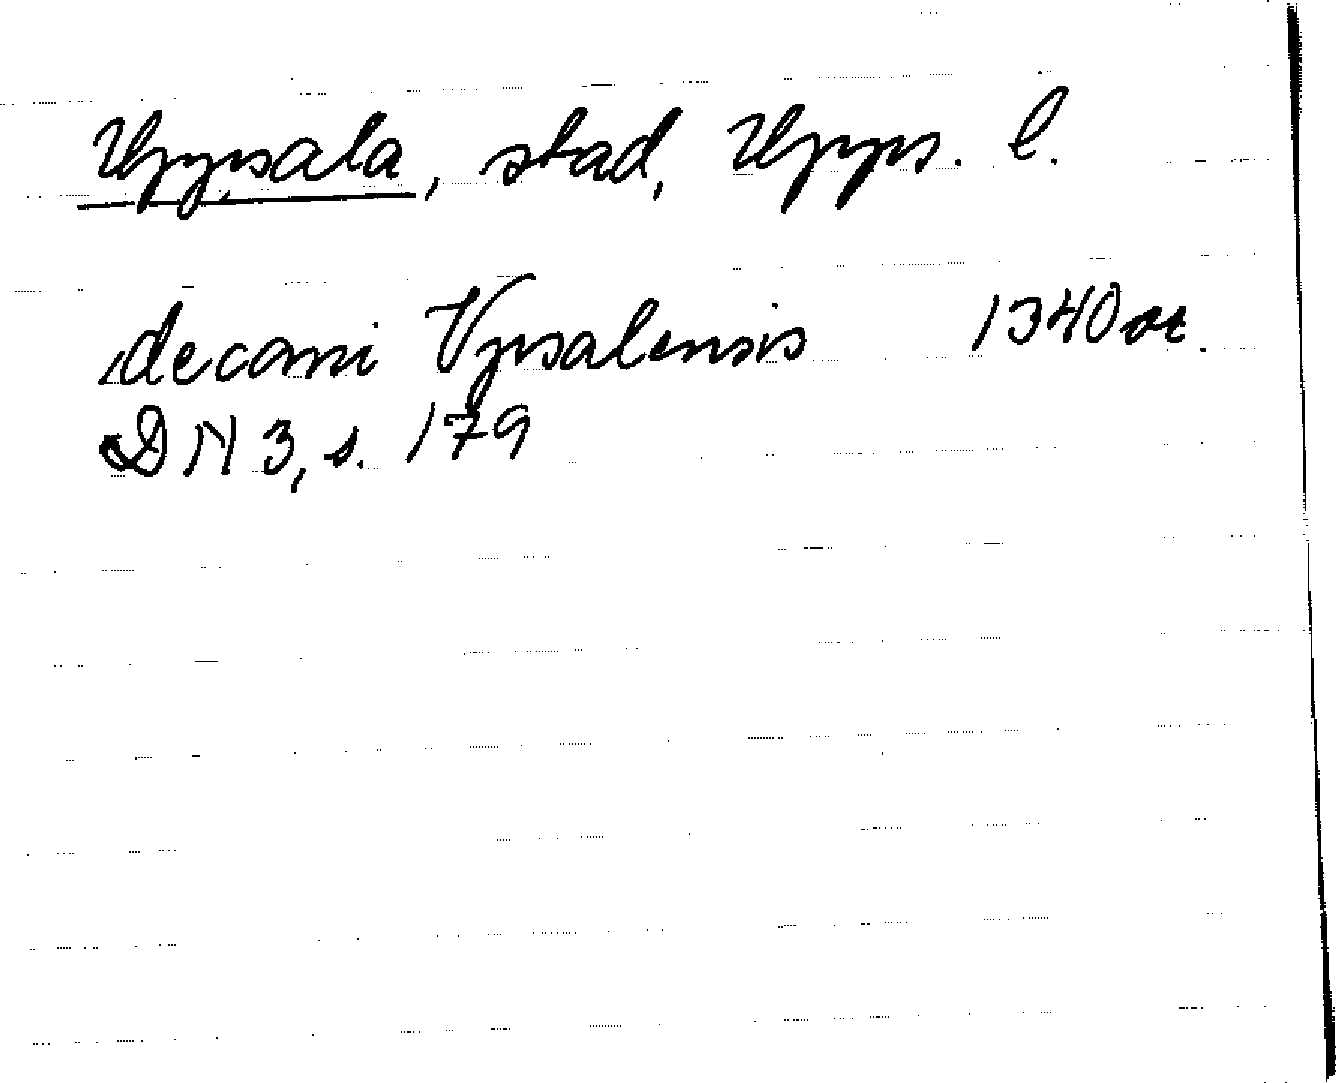 Uppsala, stad, Upps. l.
decani Vpsalensis 1340 or.
DN 3, s. 179